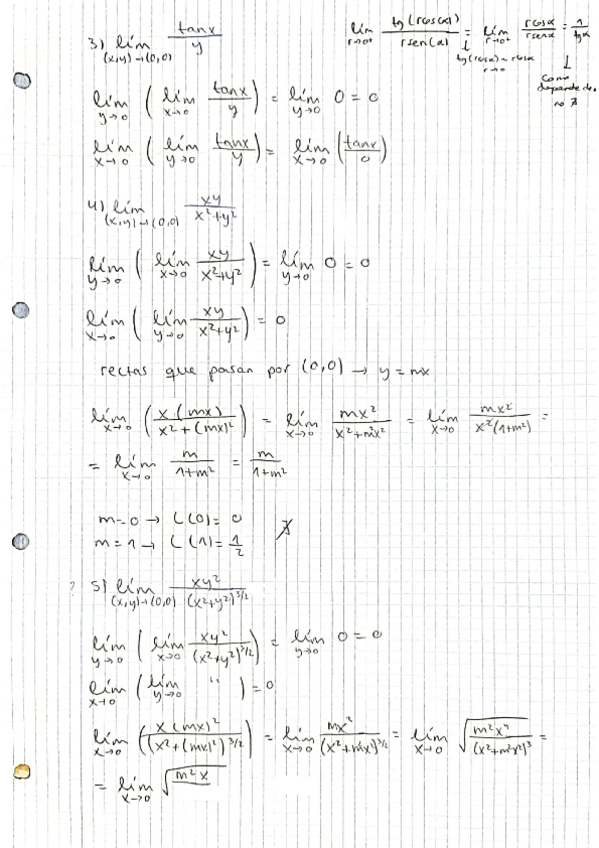 3) lím_{(x,y)→(0,0)} tanx/y
lím_{r→0⁺} tg(rcos(α))/rsen(α) = lím_{r→0⁺} rcosα/rsenα = 1/tgα
↓ ↓
tg(rcosα) ~ rcosα
r→0
Como depende de
no ∄
lím_{y→0} ( lím_{x→0} tanx/y ) = lím_{y→0} 0 = 0
lím_{x→0} ( lím_{y→0} tanx/y ) = lím_{x→0} (tanx/0)
4) lím_{(x,y)→(0,0)} xy/(x²+y²)
lím_{y→0} ( lím_{x→0} xy/(x²+y²) ) = lím_{y→0} 0 = 0
lím_{x→0} ( lím_{y→0} xy/(x²+y²) ) = 0
rectas que pasan por (0,0) → y = mx
lím_{x→0} ( x(mx)/(x²+(mx)²) ) = lím_{x→0} mx²/(x²+m²x²) = lím_{x→0} mx²/(x²(1+m²)) =
= lím_{x→0} m/(1+m²) = m/(1+m²)
m=0 → L(0) = 0
m=1 → L(1) = 1/2 ∄
? 5) lím_{(x,y)→(0,0)} xy²/(x²+y²)^{3/2}
lím_{y→0} ( lím_{x→0} xy²/(x²+y²)^{3/2} ) = lím_{y→0} 0 = 0
lím_{x→0} ( lím_{y→0} " ) = 0
lím_{x→0} ( x(mx)²/(x²+(mx)²)^{3/2} ) = lím_{x→0} mx²/(x²+m²x²)^{3/2} = lím_{x→0} √(m²x⁴/(x²+m²x²)³) =
= lím_{x→0} √(m²x/